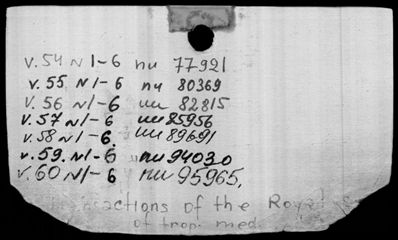 v.54 N1-6 пи 77921
v.55 N1-6 пи 80369
v.56 N1-6 пи 82815
v.57 N1-6 пи 85956
v.58 N1-6. пи 89691
v.59. N1-6 пи 94030
v.60 N1-6 пи 95965.
of the Royal
of trop. med.